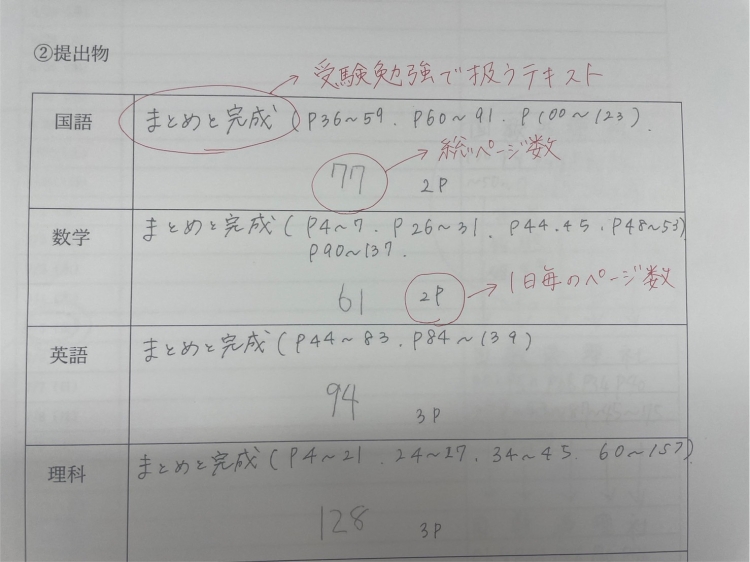 ②提出物
受験勉強で扱うテキスト
国語 まとめと完成 (P36～59. P60～91. P100～123).
総ページ数
77 2P
数学 まとめと完成 (P4～7. P26～31. P44.45. P48～53)
P90～137.
1日毎のページ数
61 2P
英語 まとめと完成 (P44～83. P84～139)
94 3P
理科 まとめと完成 (P4～21. 24～27. 34～45. 60～157)
128 3P